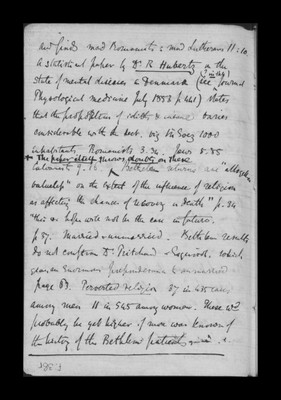 and finds mad Romanists : mad Lutherans 11 : 10.
A statistical paper by Dr. R Hubertz on the
state of mental diseases in Denmark (see Journal
Physiological medicine July 1853 p 441) states
that the proportion of idiots & insane varies
considerable with the sect. viz in every 1000
inhabitants Romanists 3.34. Jews 5.85
The paper itself throws doubts on these
Calvinists
Bethlem returns are "altogether
valueless" on the extent of the influence of religion
as affecting the chance of recovery or death" p. 34
this we hope will not be the case in future.
p 57. Married - unmarried. Bethlem results
do not confirm Dr. Pritchard & Esquirol, which
gave an enormous preponderance to unmarried
page 63. Perverted religion 37 in 415 cases
among men 11 in 545 among women. These wd
probably be yet higher if more was known of
the history of the Bethlem patients